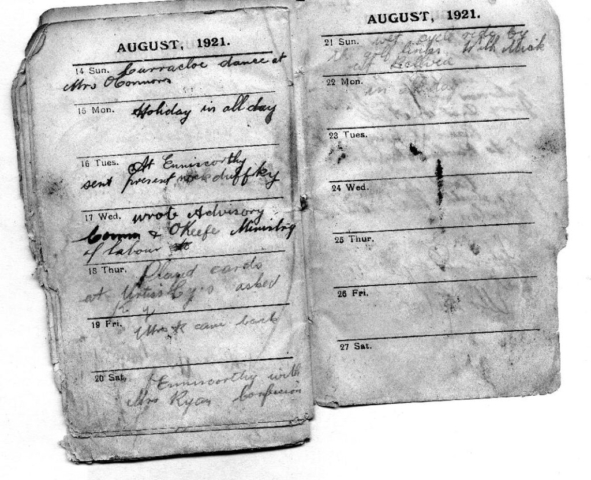 AUGUST, 1921.
14 Sun. Curracloe dance at
Mrs O'Connors
15 Mon. Holiday in all day
16 Tues. At Enniscorthy
sent present
17 Wed. wrote Advisory
Comm & O'Keefe Ministry
of labour
18 Thur. Played cards
at asked
19 Fri. Mrs K came back
20 Sat. Enniscorthy with
Mrs Ryan Confession
AUGUST, 1921.
21 Sun. cycle ride by
links With Mick
22 Mon. in all day
23 Tues.
24 Wed.
25 Thur.
26 Fri.
27 Sat.